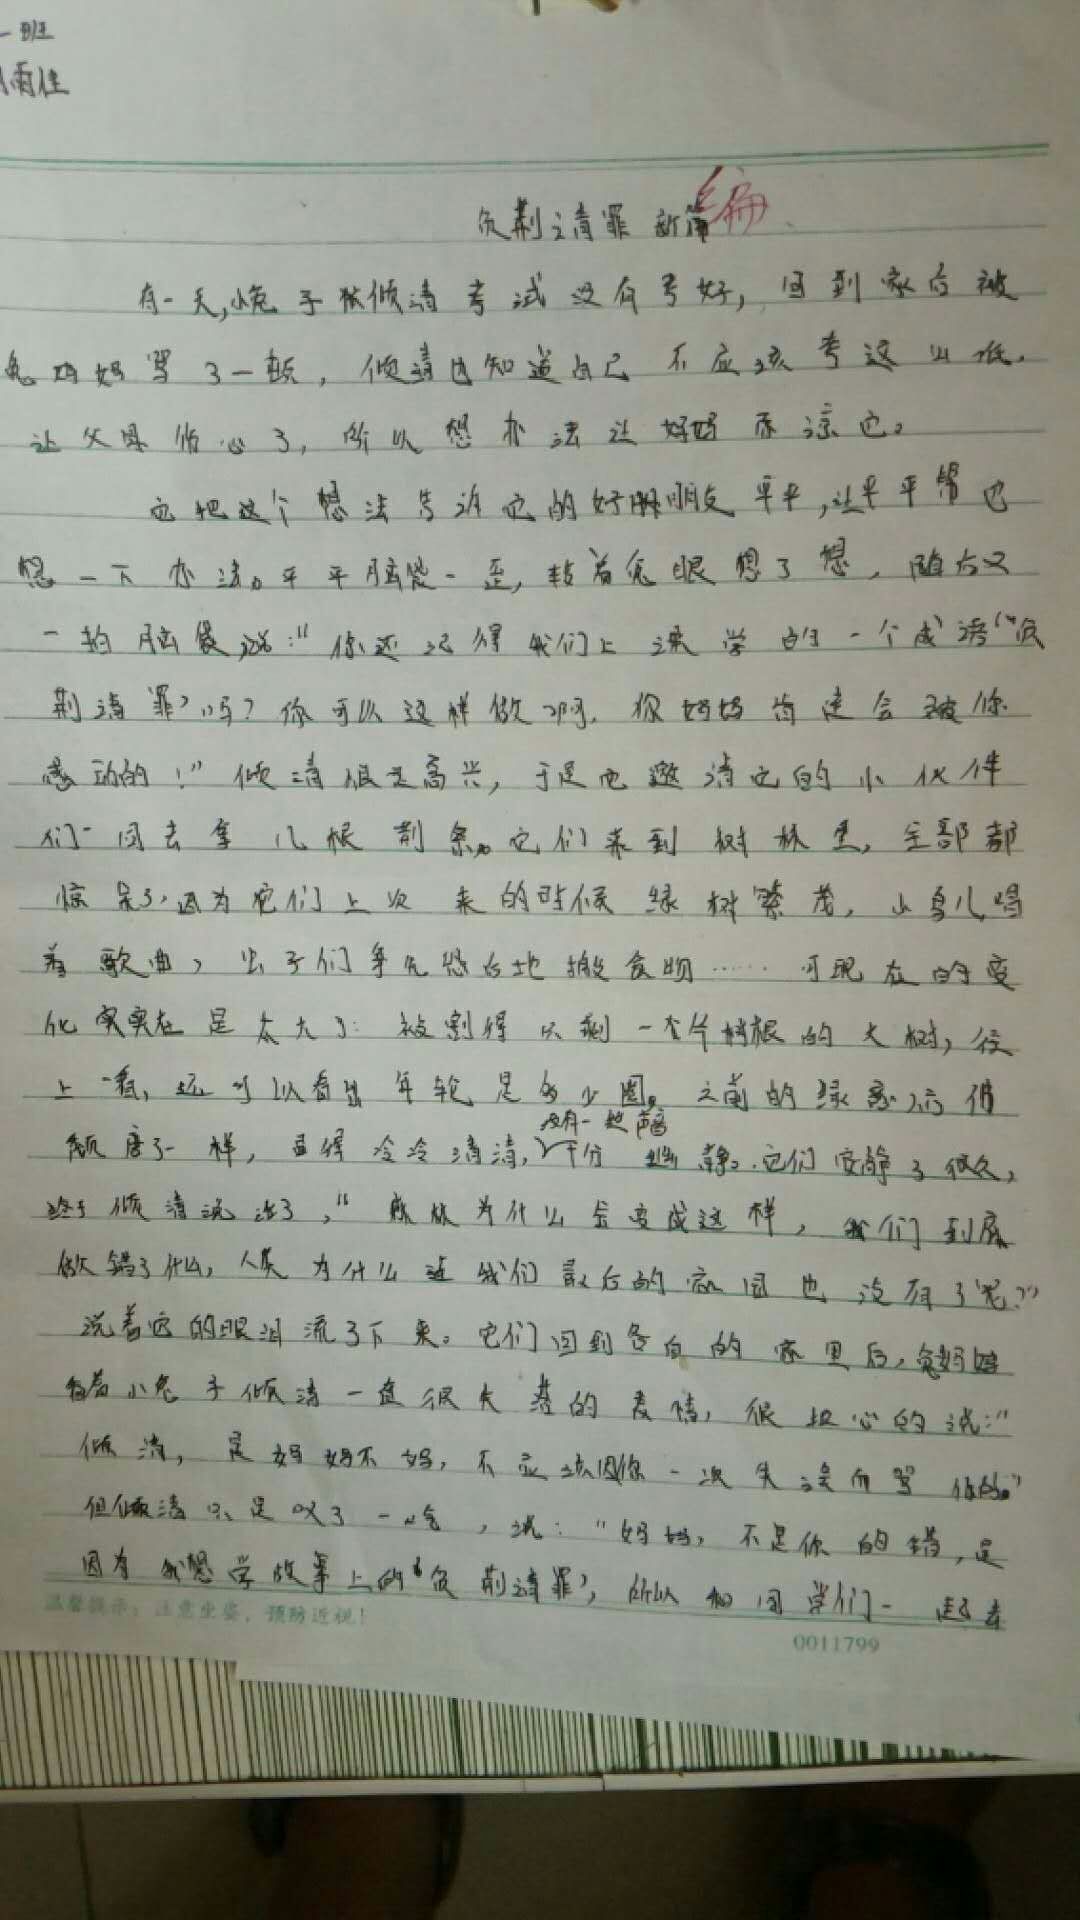 一班
雨佳
负荆请罪新篇
编
有一天,小兔子倾清考试没有考好，回到家后被
兔妈妈骂了一顿，倾清也知道自己不应该考这么低，
让父母伤心了，所以想办法让妈妈原谅它。
它把这个想法告诉它的好朋友平平,让平平帮它
想一下办法。平平脑袋一歪，转着兔眼想了想，随后又
一拍脑袋说：“你还记得我们上课学的一个成语‘负
荆请罪’吗？你可以这样做啊，你妈妈肯定会被你
感动的！”倾清很是高兴，于是它邀请它的小伙伴
们一同去拿几根荆条。它们来到树林里，全部都
惊呆了，因为它们上次来的时候绿树繁茂，小鸟儿唱
着歌曲，虫子们争先恐后地搬食物……可现在的变
化实实在是太大了：被割得只剩一个片树根的大树，往
上一看，还可以看出年轮是多少圈。之前的绿意
颓废了一样，显得冷冷清清，没有一些声音十分 静。它们安静了很久，
终于倾清说话了，“ 为什么会变成这样，我们到底
做错了什么，人类为什么连我们最后的家园也没有了呢？”
说着它的眼泪流了下来。它们回到各自的家里后，兔妈妈
看着小兔子倾清一直很失落的表情，很担心的说：“
倾清，是妈妈不好，不应该因你一次失误而骂你的。”
但倾清只是叹了一口气，说：“妈妈，不是你的错，是
因为我想学故事上的‘负荆请罪’，所以和同学们一起去
温馨提示：注意坐姿，预防近视！
0011799